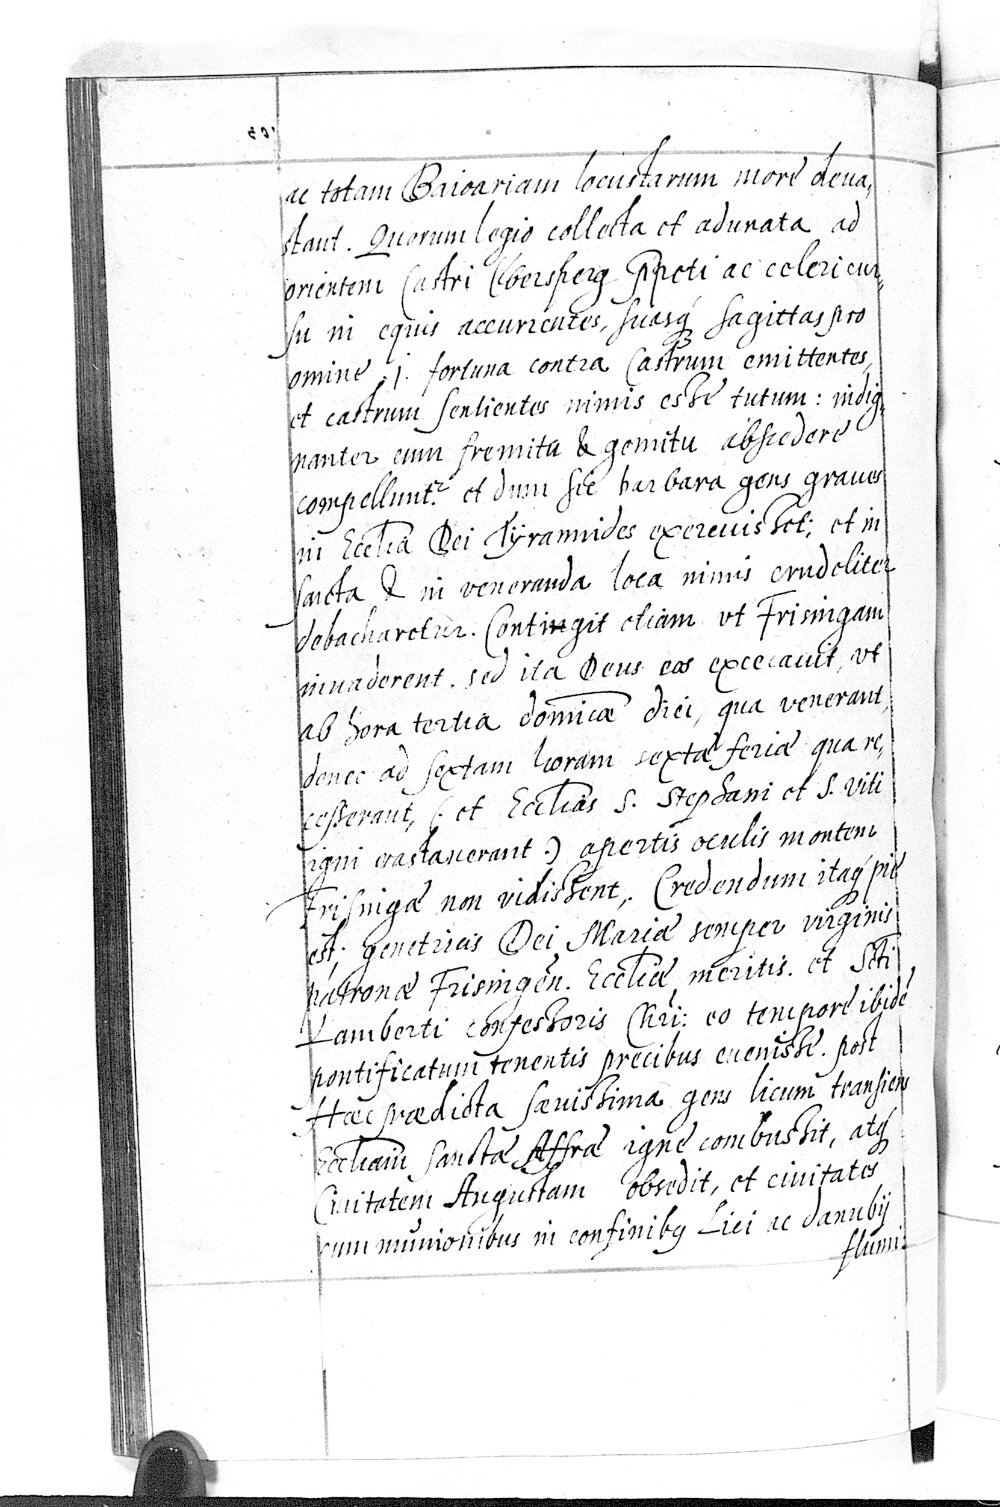 ac totam Baioariam locustarum more deua,
stant. Quorum legio collecta et adunata ad
orientem Castri Ebersperg ppeti ac celeri cur,,
su in equis accurrentes, suasq́ sagittas pro
omine .j. fortuna contra Castrum emittentes,
et castrum sentientes nimis esse tutum: indig,
nanter cum fremitu & gemitu abscedere
compellunt.r et dum sic barbara gens graues
in Ecclia Dei Tyrannides exercuisset; et in
sancta & in veneranda loca nimis crudeliter
debacharetur. Contingit etiam vt Frisingam
inuaderent. sed ita Deus eos excecauit, vt
ab hora tertia domicæ diei, qua venerant,
donec ad sextam horam sextæ feriæ qua re,
cesserant, (: et Ecclias S. Stephani et S. Viti
igni vastauerant :) apertis oculis montem
Frisingæ non vidissent,. Credendum itaq́ pie
est; genetricis Dei Mariæ semper virginis
patronæ Frisingen. Eccliæ meritis. et Scti
Lamberti confessoris Chri: eo tempore ibide
pontificatum tenentis precibus euenisse. post
Hæc prædicta sæuissima gens licum transiens
Eccliam sanctæ Affræ igne combussit, atq́
Ciuitatem Augustam obsedit, et ciuitates
cum munionibus in confinibq Lici ac danubij
flumi: